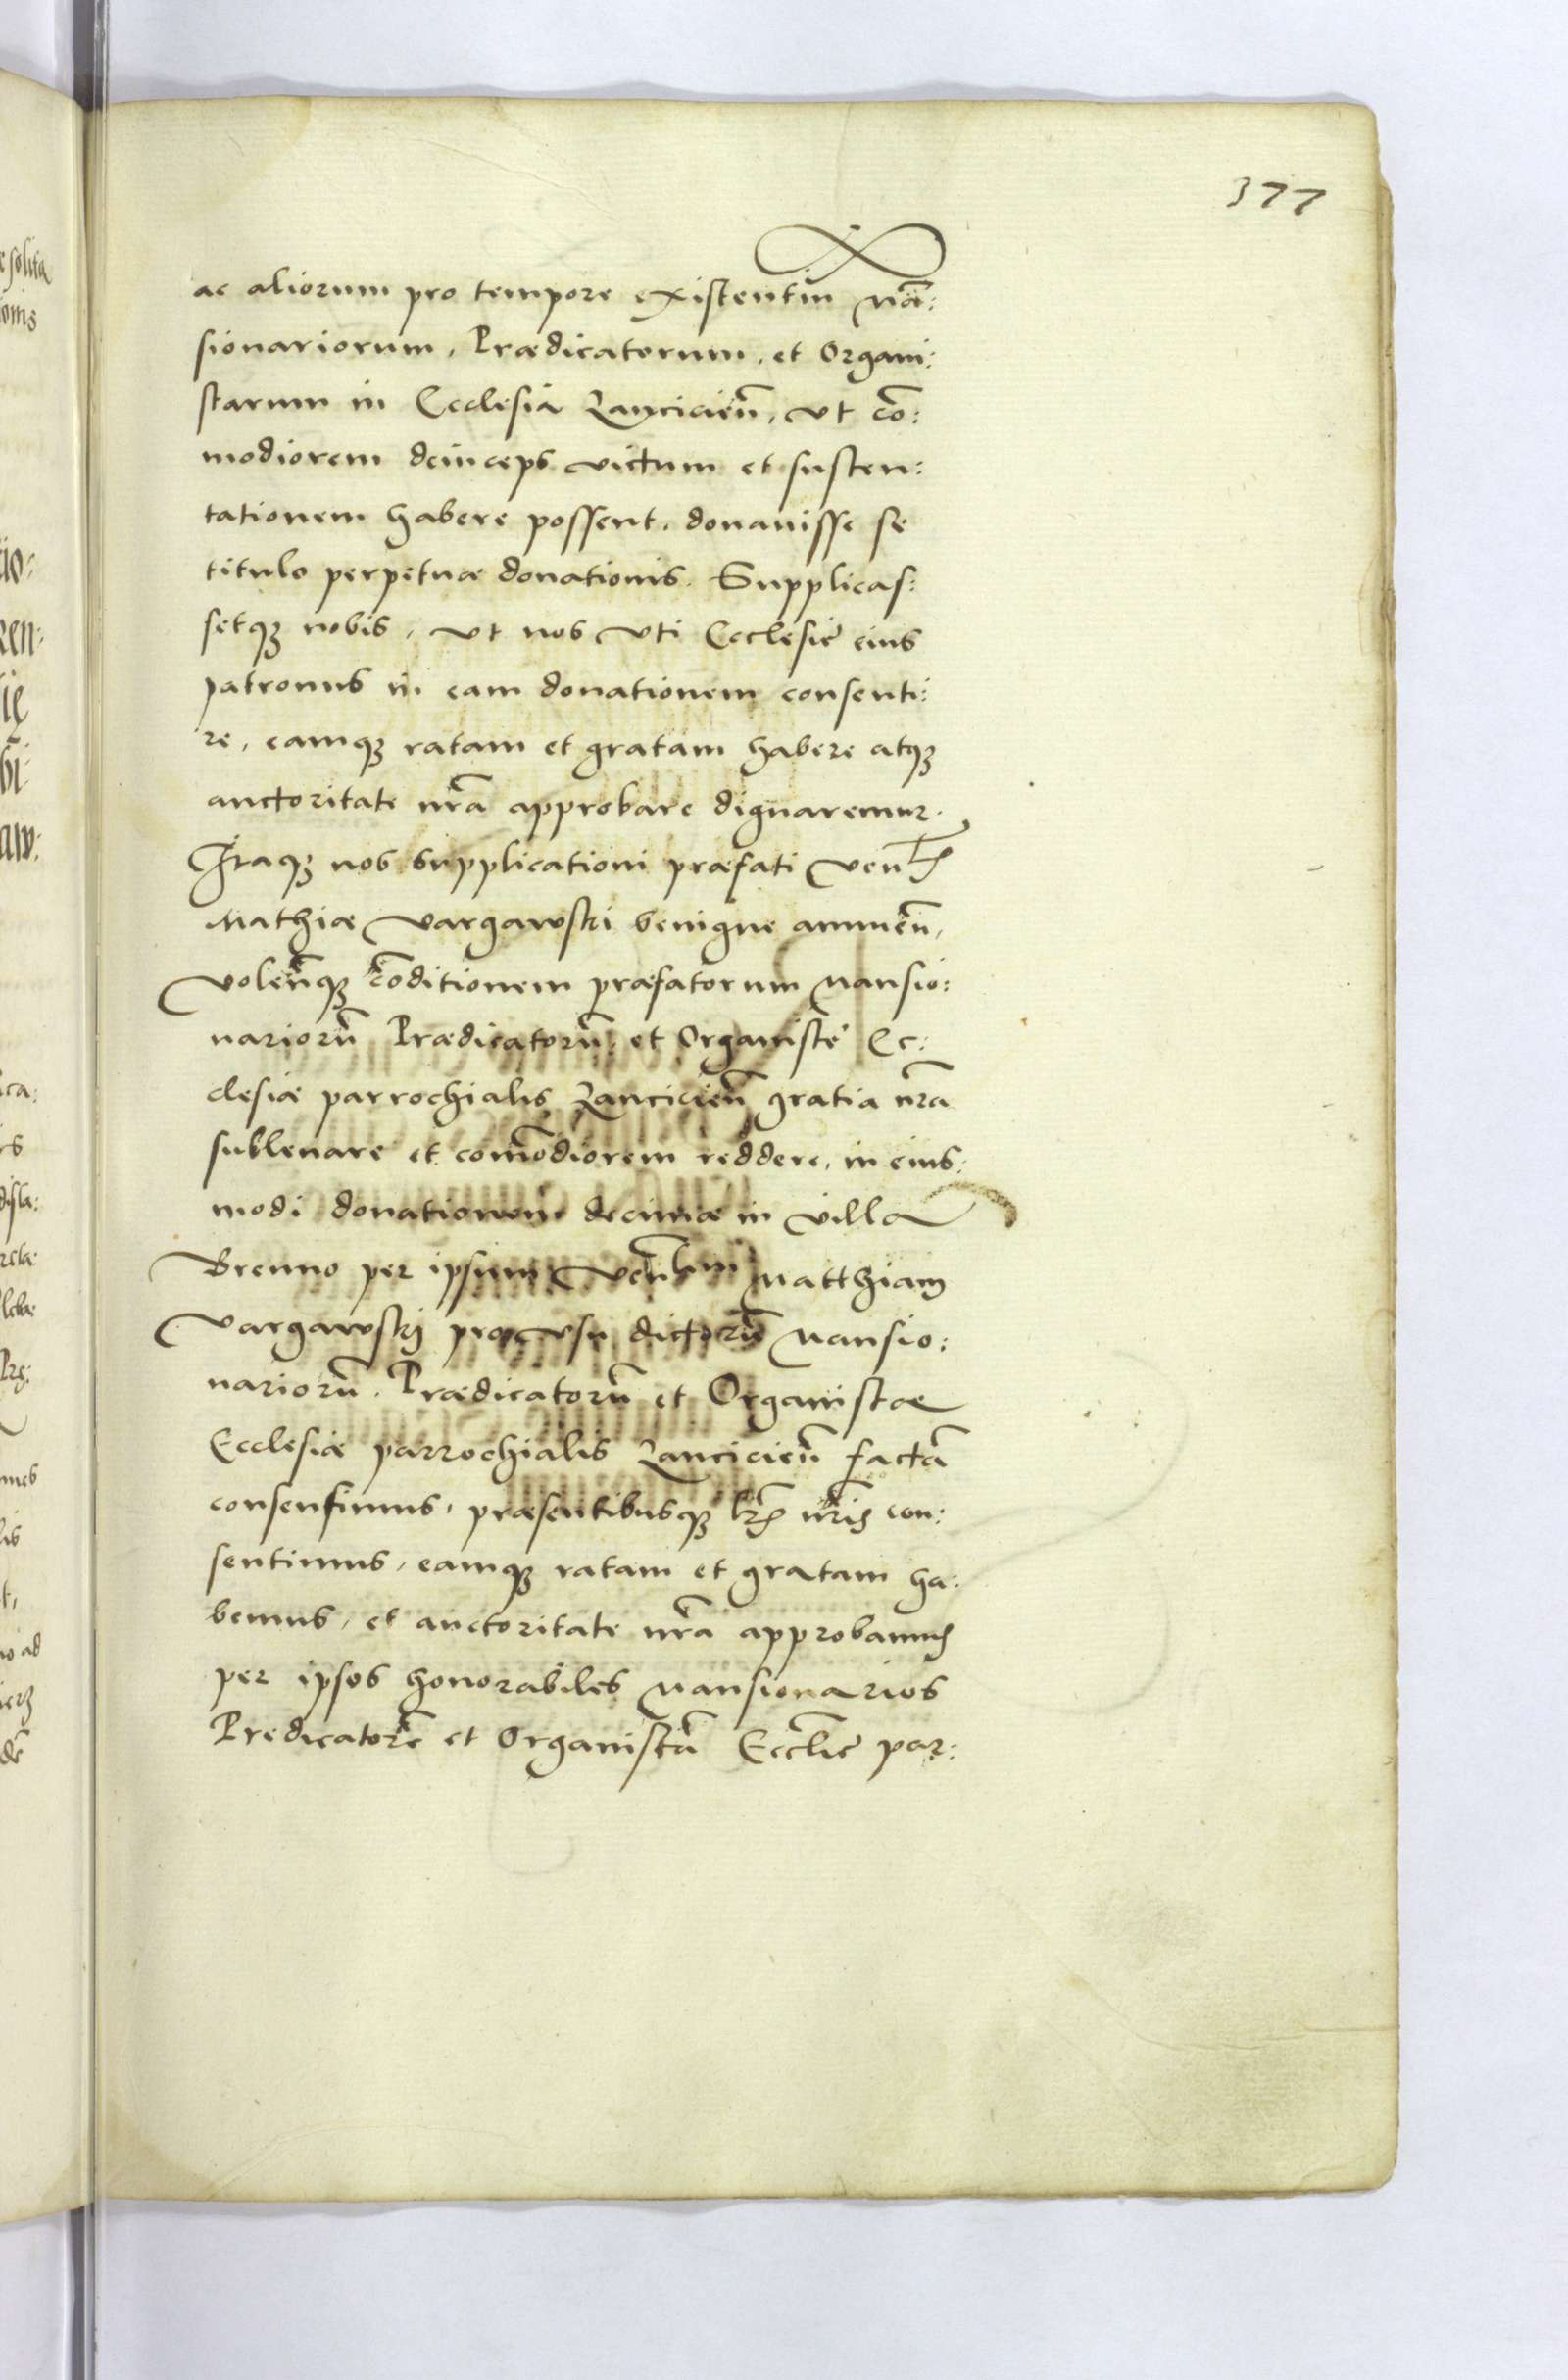 377
ac aliorum pro tempore existentiũ Mã:
sionariorum, Prædicatorum, et Organi:
starum in Ecclesia Lancicieñ, ut cõ:
modiorem deinceps victum et susten:
tationem habere possent, donavisse se
titulo perpetuæ donationis. Supplicas:
setq̃ nobis, ut nos uti Ecclesie eius
patronus in eam donationem consenti:
re, eamq̃ ratam et gratam habere atq̃
auctoritate nr̃a approbare dignaremur.
Itaq̃ nos supplicationi præfati Venlis
Mathiæ Vargawski benigne annueñ,
volenq̃ cõditionem præfatorum Mansio:
nariorũ Prædicatorũ et Organistę Ec:
clesiæ parrochialis Lancicieñ gratia nr̃a
sublevare et com̃odiorem reddere, in eius:
modi donationem decimæ in villa
Brenno per ipsum Venblem Matthiam
Vargawskj pro usu dictorũ Mansio:
nariorũ, Prædicatorũ et Organistæ
Ecclesiæ parrochialis Lancicieñ factã
consensimus, præsentibusq̃ lr̃is nr̃is con:
sentimus, eamq̃ ratam et gratam ha:
bemus, et auctoritate nr̃a approbamus
per ipsos honorabiles Mansionarios
Predicatorẽ et Organistã Ecclie par: